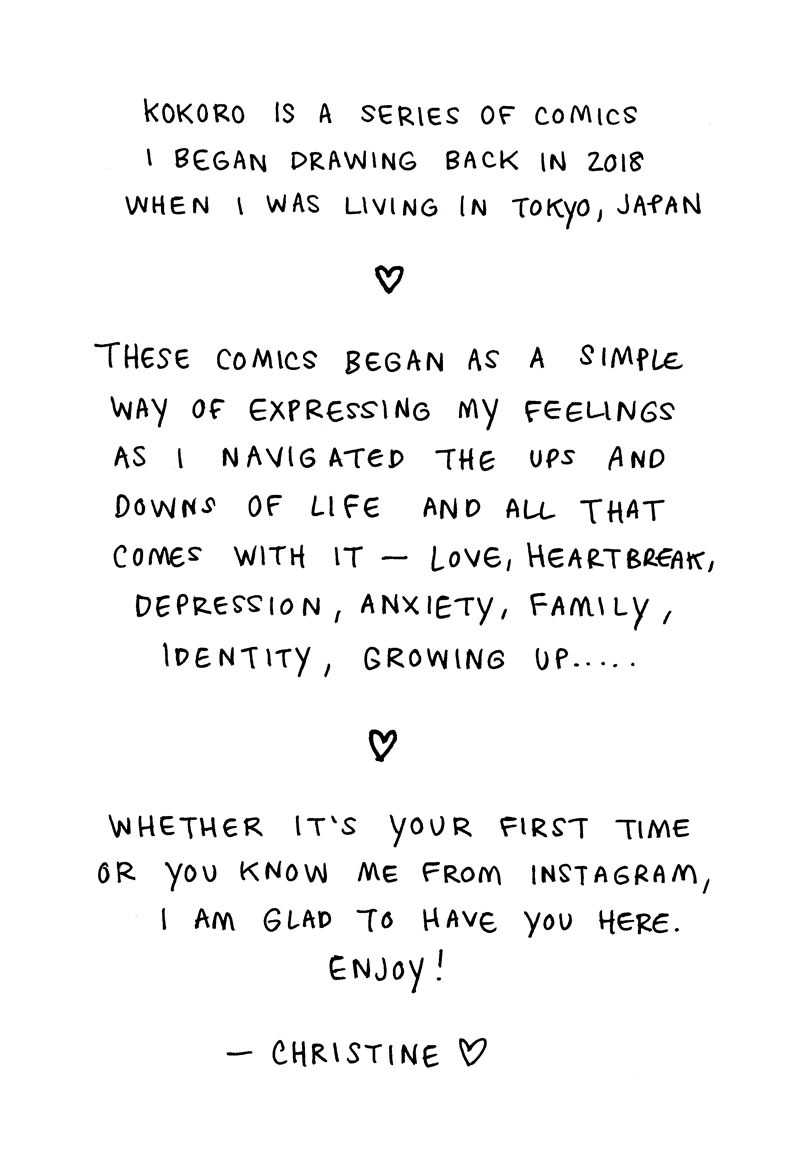 KOKORO IS A SERIES OF COMICS
I BEGAN DRAWING BACK IN 2018
WHEN I WAS LIVING IN TOKYO, JAPAN
♡
THESE COMICS BEGAN AS A SIMPLE
WAY OF EXPRESSING MY FEELINGS
AS I NAVIGATED THE UPS AND
DOWNS OF LIFE AND ALL THAT
COMES WITH IT — LOVE, HEARTBREAK,
DEPRESSION, ANXIETY, FAMILY,
IDENTITY, GROWING UP.....
♡
WHETHER IT'S YOUR FIRST TIME
OR YOU KNOW ME FROM INSTAGRAM,
I AM GLAD TO HAVE YOU HERE.
ENJOY!
— CHRISTINE ♡